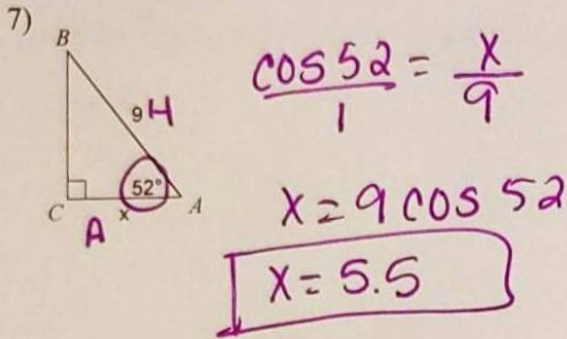 7)
B
9 H
52°
C
A
x
A
cos 52 / 1 = x / 9
x = 9 cos 52
x = 5.5